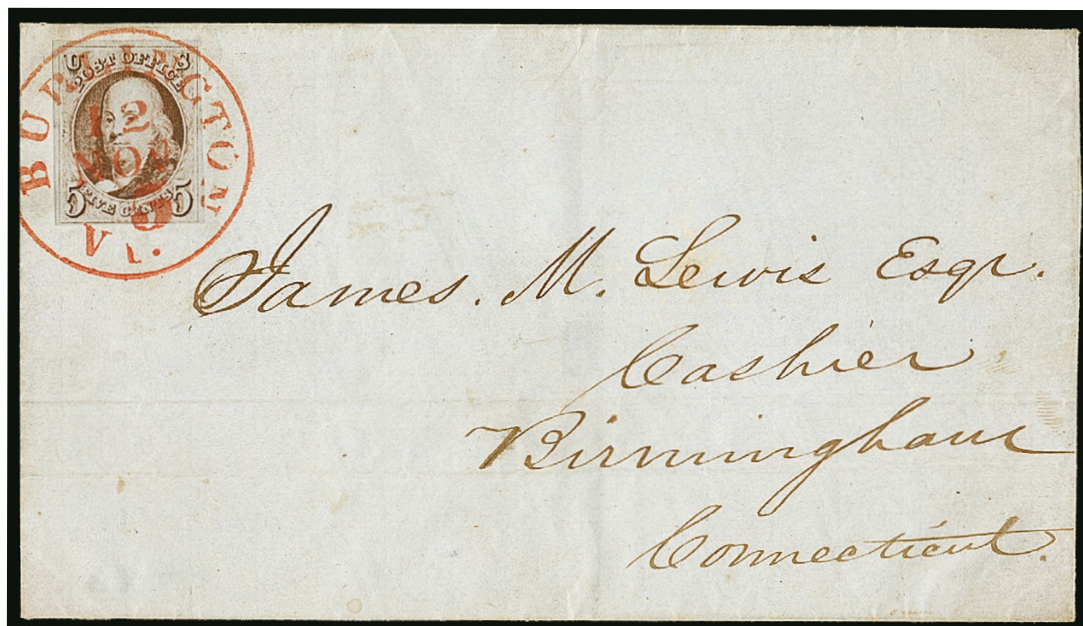 BURLINGTON
12
NOV
5
Vt.
POST OFFICE
FIVE CENTS
5 5
James. M. Lewis Esqr.
Cashier
Birmingham
Connecticut.